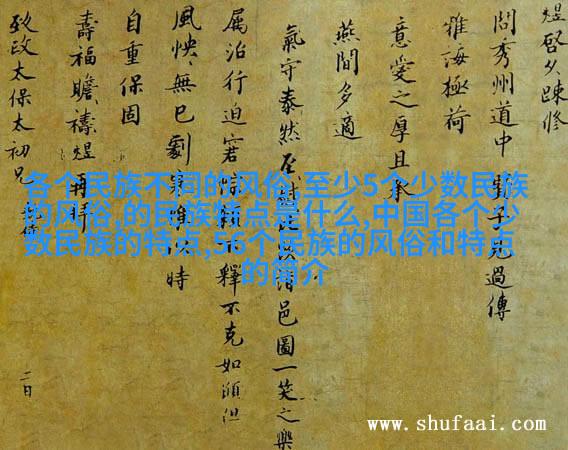 煜啓久踈修
問秀州道中 子元過傳
雅誨極荷
意愛之厚且承
燕閒多適
氣守泰然 邑圖一笑之樂
属治行迫窘 釋不克如願但
風怏怏無已劇寒 時
自重保固
壽福瞻禱煜再拜
致政太保太初兄
二日
各个民族不同的风俗,至少5个少数民族
的风俗,的民族特点是什么,中国各个少
数民族的特点,56个民族的风俗和特点
的简介
www.shufaai.com